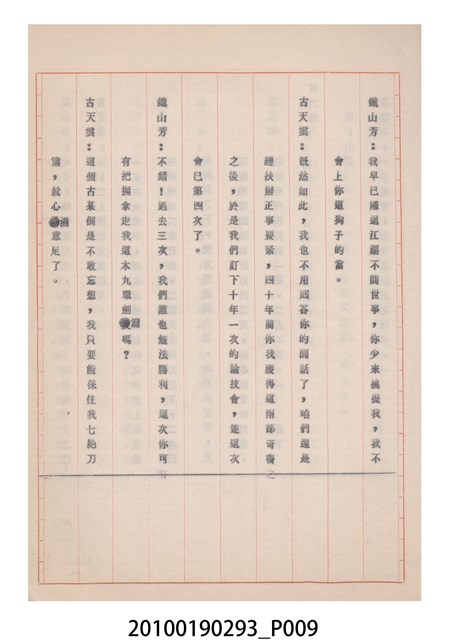 鐵山芳：我早已隱退江湖不問世事，你少來挑撥我，我不
會上你這狗子的當。
古天雲：既然如此，我也不用回答你的問話了，咱們還是
趕扶辦正事要緊，四十年前你我獲得這兩部奇書之
之後，於是我們訂下十年一次的論技會，連這次
會已第四次了。
鐵山芳：不錯！過去三次，我們誰也無法勝利，這次你可
有把握拿走我這本九環劍譜嗎？
古天雲：這個古某倒是不敢忘想，我只要能保住我七絕刀
譜，就心滿意足了。
20100190293_P009